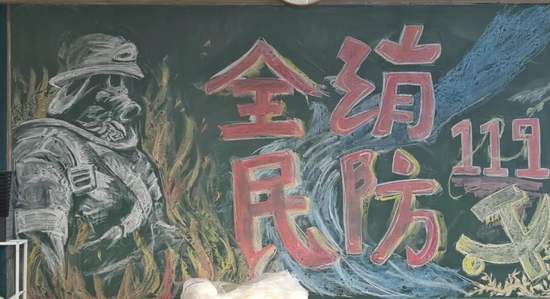 全民
绡防
119